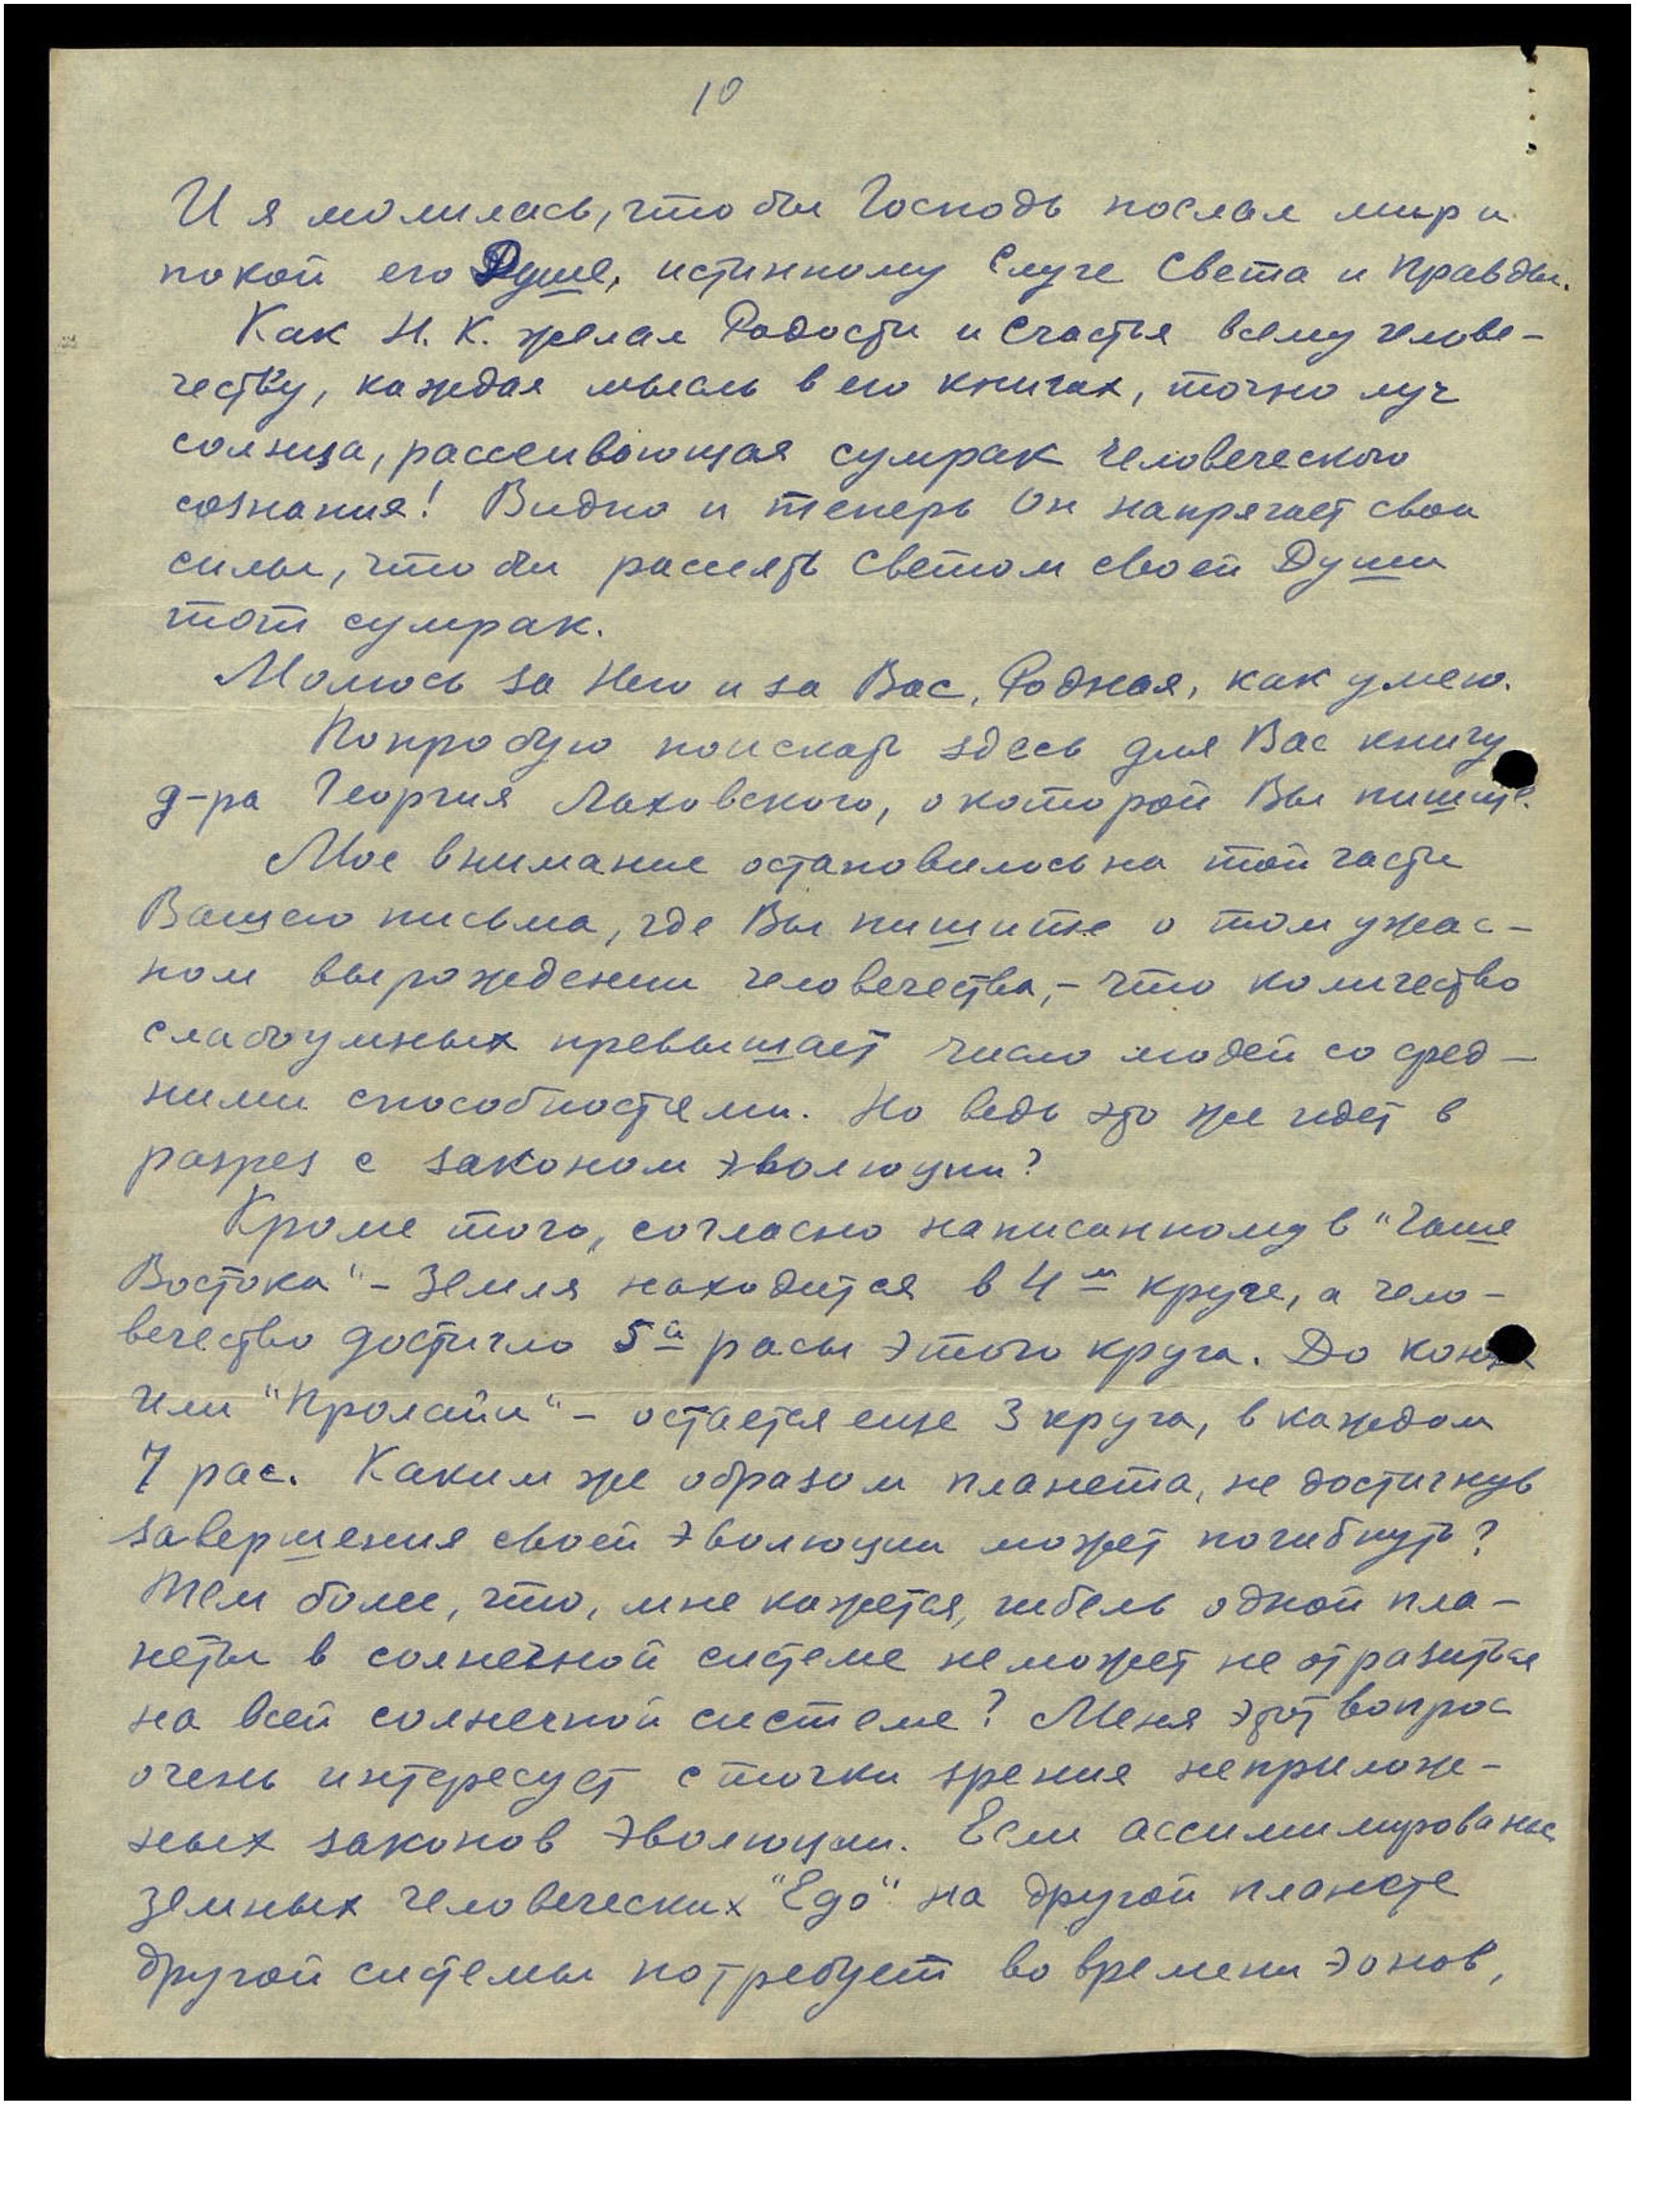 10
И я молилась, что бы Господь послал мир и
покой его Душе, истинному Слуге Света и Правды.
Как Н. К. желал Радости и Счастья всему челове-
честву, каждая мысль в его книгах, точно луч
солнца, рассеивающая сумрак человеческого
сознания! Видно и теперь Он напрягает свои
силы, что бы рассеять Светом своей Души
тот сумрак.
Молюсь за Него и за Вас, Родная, как умею.
Попробую поискать здесь для Вас книгу
д-ра Георгия Лаховского, о которой Вы пишите.
Мое внимание остановилось на той части
Вашего письма, где Вы пишите о том ужас-
ном вырождении человечества, - что количество
слабоумных превышает число людей со сред-
ними способностями. Но ведь это же идет в
разрез с законом эволюции?
Кроме того, согласно написанному в "Чаше
Востока" - Земля находится в 4м круге, а чело-
вечество достигло 5й расы этого круга. До конца
или "Пролайи" - остается еще 3 круга, в каждом
7 рас. Каким же образом планета, не достигнув
завершения своей эволюции может погибнуть?
Тем более, что, мне кажется, гибель одной пла-
неты в солнечной системе не может не отразиться
на всей солнечной системе? Меня этот вопрос
очень интересует с точки зрения неприложе-
ных законов эволюции. Если ассимилирование
земных человеческих "Ego" на другой планете
другой системы потребует во времени эонов,